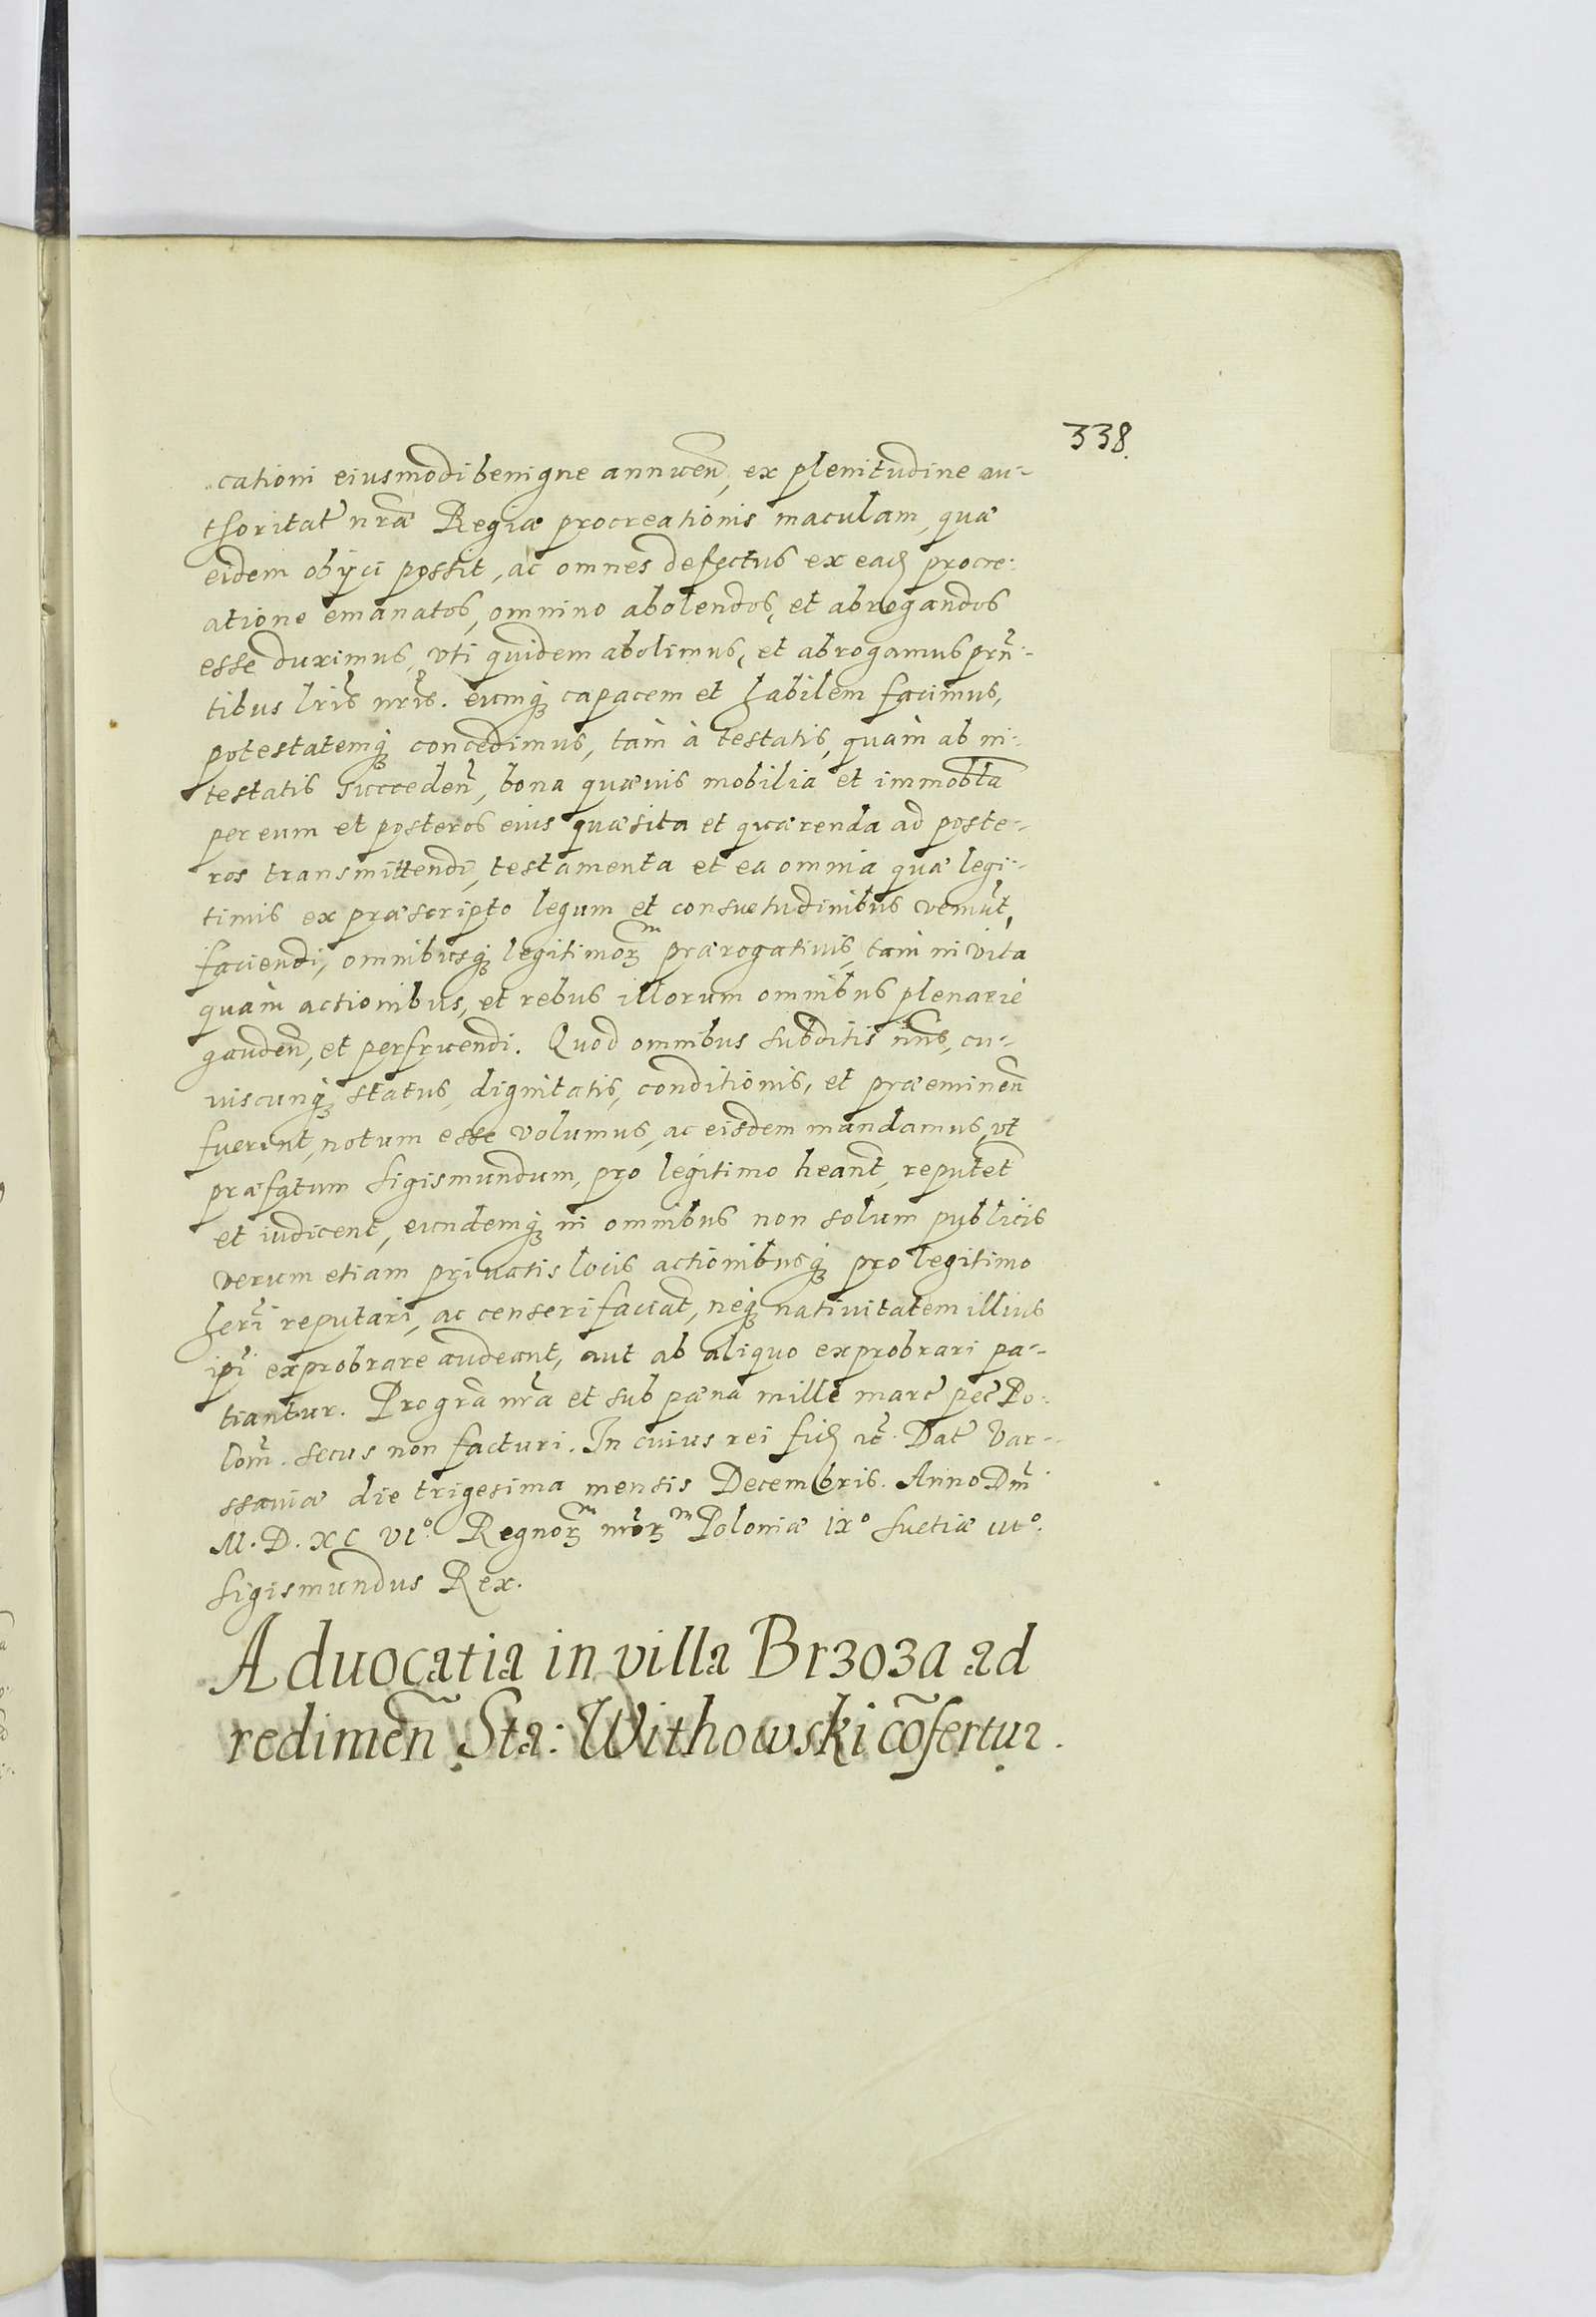 338.
cationi eiusmodi benigne annuen̄, ex plenitudine au-
thoritat̃ nr̃æ Regiæ procreationis maculam, quæ
eidem obijci possit, ac omnes defectus ex eadẽ procre-
atione emanatos, omnino abolendos, et abrogandos
esse duximus, vti quidem abolimus, et abrogamus prñ-
tibus lrĩs nrĩs. eumq́ capacem et habilem facimus,
potestatemq́ concedimus, tam à testatis, quàm ab in-
testatis succedeñ, bona quæuis mobilia et immobl̃ia
per eum et posteros eius quæsita et quærenda ad poste-
ros transmittendi, testamenta et ea omnia quæ legi-
timis ex præscripto legum et consuetudinibus veniũt,
faciendi, omnibusq́ legitimorᵐ prærogatiuis, tam in vita
quàm actionibus, et rebus illorum omnibus plenariè
gauden̄, et perfruendi. Quod omnibus subditis nr̃is, cu-
iuscunq́ status, dignitatis, conditionis, et præeminen̄
fuerint, notum esse volumus, ac eisdem mandamus, vt
præfatum Sigismundum, pro legitimo heant̃, reputet̃
et iudicent, eundemq́ in omnibus non solum publicis
verum etiam priuatis locis actionibusq́ pro legitimo
her̃i reputari, ac censeri faciat̃, neq́ natiuitatem illius
ip̃i exprobrare audeant, aut ab aliquo exprobrari pa-
tiantur. Pro gr̃a nr̃a et sub pæna mille marc̃ pec̃ Po-
loñ. secus non facturi. In cuius rei fidẽ etc̃. Dat̃ Var-
ssauiæ die trigesima mensis Decembris. Anno Dñi
M. D. XC VIº. Regnorᵐ nr̃orᵐ Poloniæ IXº Suetiæ IIIº.
Sigismundus Rex.
Aduocatia in villa Brzoza ad
redimen̄ Sta: Withowski cõfertur.